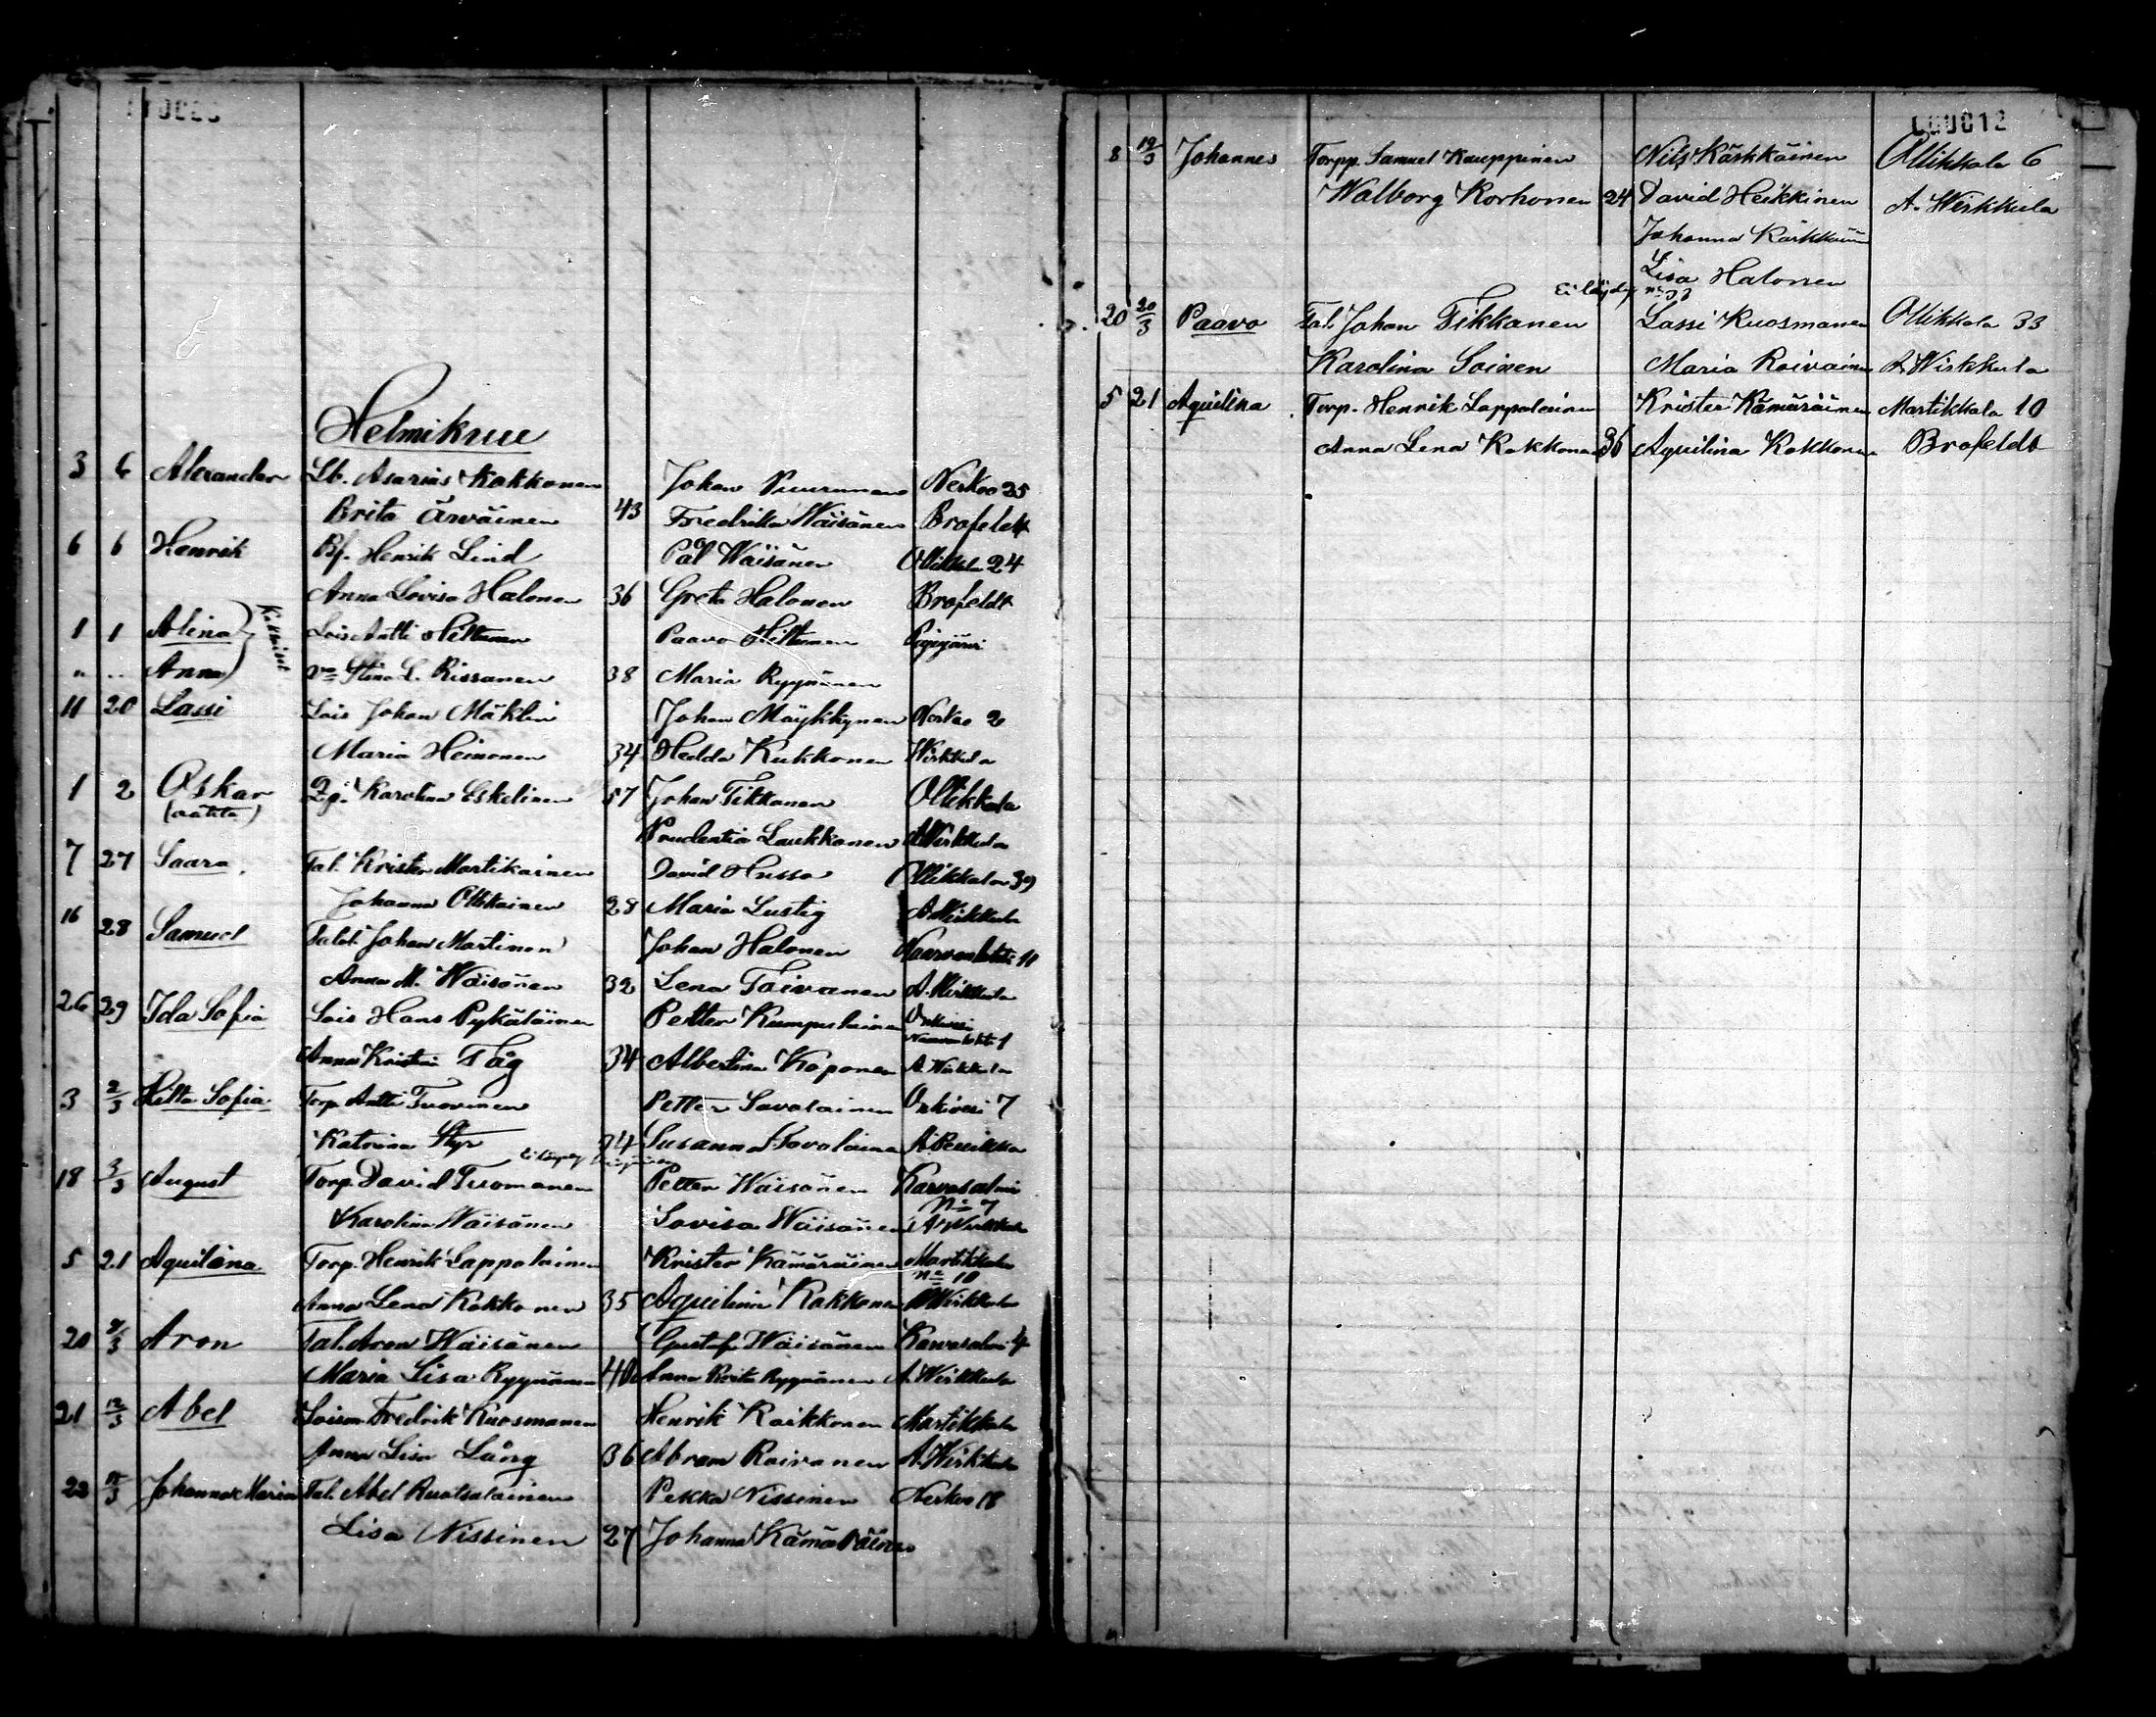 Helmikuu
3 6 Alexander Lb. Asarias Kokkonen Johan Puurunen Nerkoo 25
Brita Ärväinen 43 Fredrika Wäisänen Brofeldt
6 6 Henrik Bf. Henrik Lind Pål Wäisänen Ollikkala 24
Anna Lovisa Halonen 36 Greta Halonen Brofeldt
1 1 Alina Lois Antti Hiltunen Paavo Hiltunen
" " Anna Stina L. Rissanen 38 Maria Ryynänen
11 20 Lassi Lois Johan Mäklin Johan Möykkynen Nerkoo 2
Maria Heinonen 34 Hedda Kukkonen Wirkkula
1 2 Oskar Karolina Eskelinen 57 Johan Tikkanen Ollikkala
Prudentia Laukkanen A Wirkkula
7 27 Saara Tal. Krister Martikainen David Hussa Ollikkala 39
Johanna Ollikainen 28 Maria Lustig A Wirkkula
16 28 Samuel Tal. Johan Martinen Johan Halonen Naarvanlahti 11
Anna M. Wäisänen 32 Lena Toivanen A. Wirkkula
26 29 Ida Sofia Lois Hans Pykäläinen Petter Kumpulainen Onkivesi
Anna Kristin Tåg 34 Albertina Koponen A Wirkkula
3 2/3 Sofia Torp. Antti Tuovinen Petter Savolainen Onkivesi 7
Katrina Styr 24 Susanna Savolainen
18 3/3 August Torp. David Tuomanen Petter Wäisänen Karvasalmi
No 7
Karolina Wäisänen Lovisa Wäisänen A Wirkkula
5 21 Aquilina Torp. Henrik Lappalainen Krister Kämäräinen Martikkala
No 10
Anna Lena Kokkonen 35 Aquilina Kokkonen A Wirkkula
20 Aron Tal. Aron Wäisänen Gustaf Wäisänen Karvasalmi 4
Maria Lisa Ryynänen 40 Anna Brita Ryynänen A. Wirkkula
21 12/3 Abel Fredrik Kuosmanen Henrik Kaikkonen Martikkala
Anna Lisa Lång 36 Abram Roivanen A. Wirkkula
22 Johanna Maria Tal. Abel Ruotsalainen Pekka Nissinen Nerkoo 18
Lisa Nissinen 27 Johanna Kämäräinen
000012
8 19/3 Johannes Torpp. Samuel Kauppinen Nils Kärkkäinen Ollikkala 6
Walborg Korhonen 24 David Heikkinen A. Wirkkula
Johanna Kärkkäinen
Lisa Halonen
20 20/3 Paavo Tal. Johan Tikkanen Lassi Kuosmanen Ollikkala 33
Karolina Soinen Maria Roivainen A Wirkkula
5 21 Aquilina Torp. Henrik Lappalainen Krister Kämäräinen Martikkala 10
Anna Lena Kokkonen 36 Aquilina Kokkonen Brofeldt